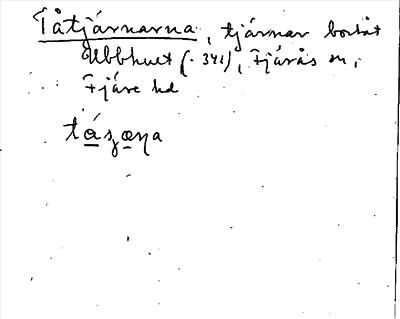 Tåtjärnarna, tjärnar bortåt
Ubbhult (. 341), Fjärås sn,
Fjäre hd
tásąŋa